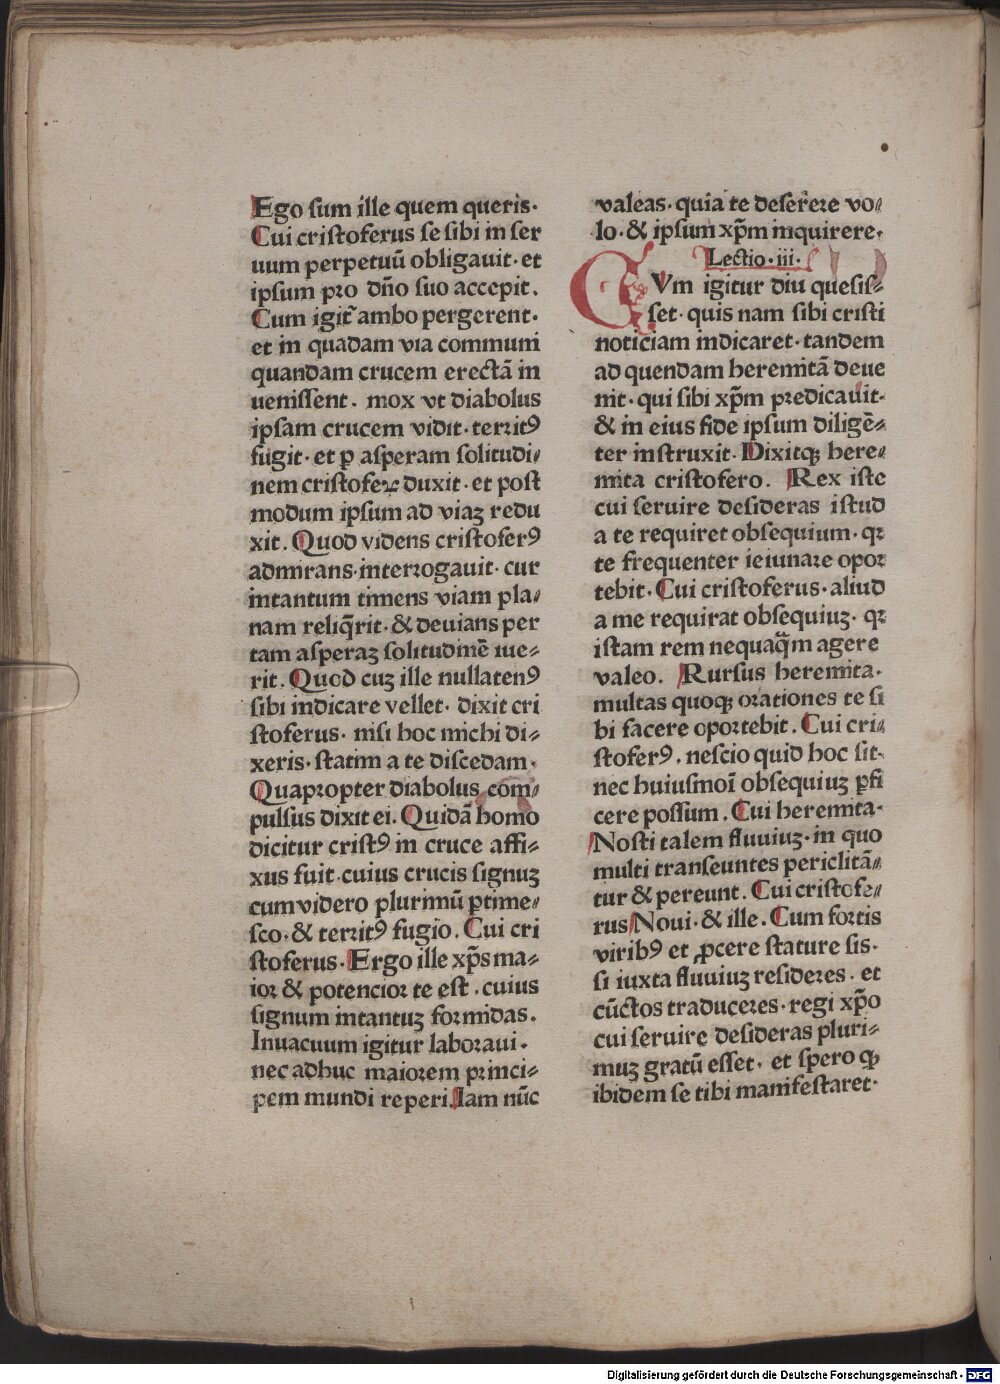 Ego sum ille quem queris·
Cui cristoferus se sibi in ser
uum perpetuū obligauit· et
ipsum pro dño suo accepit.
Cum igit̃ ambo pergerent·
et in quadam via communi
quandam crucem erectā in
uenissent. mox vt diabolus
ipsam crucem vidit· territꝰ
fugit· et ꝑ asperam solitudi⸗
nem cristoferum duxit· et post
modum ipsum ad viaʒ redu
xit. Quod videns cristoferꝰ
admirans· interrogauit· cur
intantum timens viam pla⸗
nam reliq̃rit· & deuians per
tam asperaʒ solitudinē iue⸗
rit. Quod cuʒ ille nullatenꝰ
sibi indicare vellet· dixit cri
stoferus· nisi hoc michi di⸗
xeris· statim a te discedam·
Quapropter diabolus com⸗
pulsus dixit ei. Quidā homo
dicitur cristꝰ in cruce affi⸗
xus fuit· cuius crucis signuʒ
cum videro plurimū ꝑtime⸗
sco· & territꝰ fugio. Cui cri
stoferus· Ergo ille xp̃s ma⸗
ior & potencior te est· cuius
signum intantuʒ formidas.
Inuacuum igitur laboraui·
nec adhuc maiorem princi⸗
pem mundi reperi. Iam nūc
valeas· quia te deserere vo⸗
lo· & ipsum xp̃m inquirere.
Lectio· iii·
CVm igitur diu quesis⸗
set· quis nam sibi cristi
noticiam indicaret· tandem
ad quendam heremitā deue
nit· qui sibi xp̃m predicauit·
& in eius fide ipsum diligē⸗
ter instruxit. Dixitqꝫ here⸗
mita cristofero. Rex iste
cui seruire desideras istud
a te requiret obsequium· qꝛ
te frequenter ieiunare opor
tebit· Cui cristoferus· aliud
a me requirat obsequiuʒ· qꝛ
istam rem nequaq̃m agere
valeo. Rursus heremita·
multas quoqꝫ orationes te si
bi facere oportebit. Cui cri⸗
stoferꝰ. nescio quid hoc sit·
nec huiusmoī obsequiuʒ ꝑfi
cere possum. Cui heremita·
Nosti talem fluuiuʒ· in quo
multi transeuntes periclitā⸗
tur & pereunt. Cui cristofe⸗
rus Noui· & ille. Cum fortis
viribꝰ et ꝓcere stature sis·
si iuxta fluuiuʒ resideres· et
cūctos traduceres· regi xp̃o
cui seruire desideras pluri⸗
muʒ gratū esset· et spero qꝫ
ibidem se tibi manifestaret·
Digitalisierung gefördert durch die Deutsche Forschungsgemeinschaft - DFG